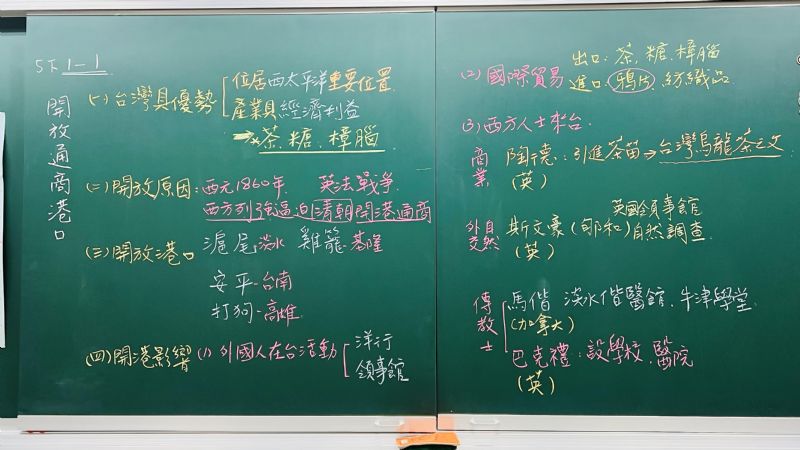 5下 1-1
開放通商港口
(一) 台灣具優勢
位居西太平洋重要位置
產業具經濟利益
→茶、糖、樟腦
(二) 開放原因:西元1860年、 英法戰爭、
西方列強逼迫清朝開港通商
(三) 開放港口 滬尾-淡水 雞籠-基隆
安平-台南
打狗-高雄
(四) 開港影響 (1) 外國人在台活動
洋行
領事館
(2) 國際貿易
出口:茶、糖、樟腦
進口:鴉片、紡織品
(3) 西方人士來台
商業 陶德:引進茶苗→台灣烏龍茶之父
(英)
外交 自然 斯文豪(郇和) 英國領事館 自然調查
(英)
傳教士
馬偕 淡水偕醫館、牛津學堂
(加拿大)
巴克禮:設學校、醫院
(英)